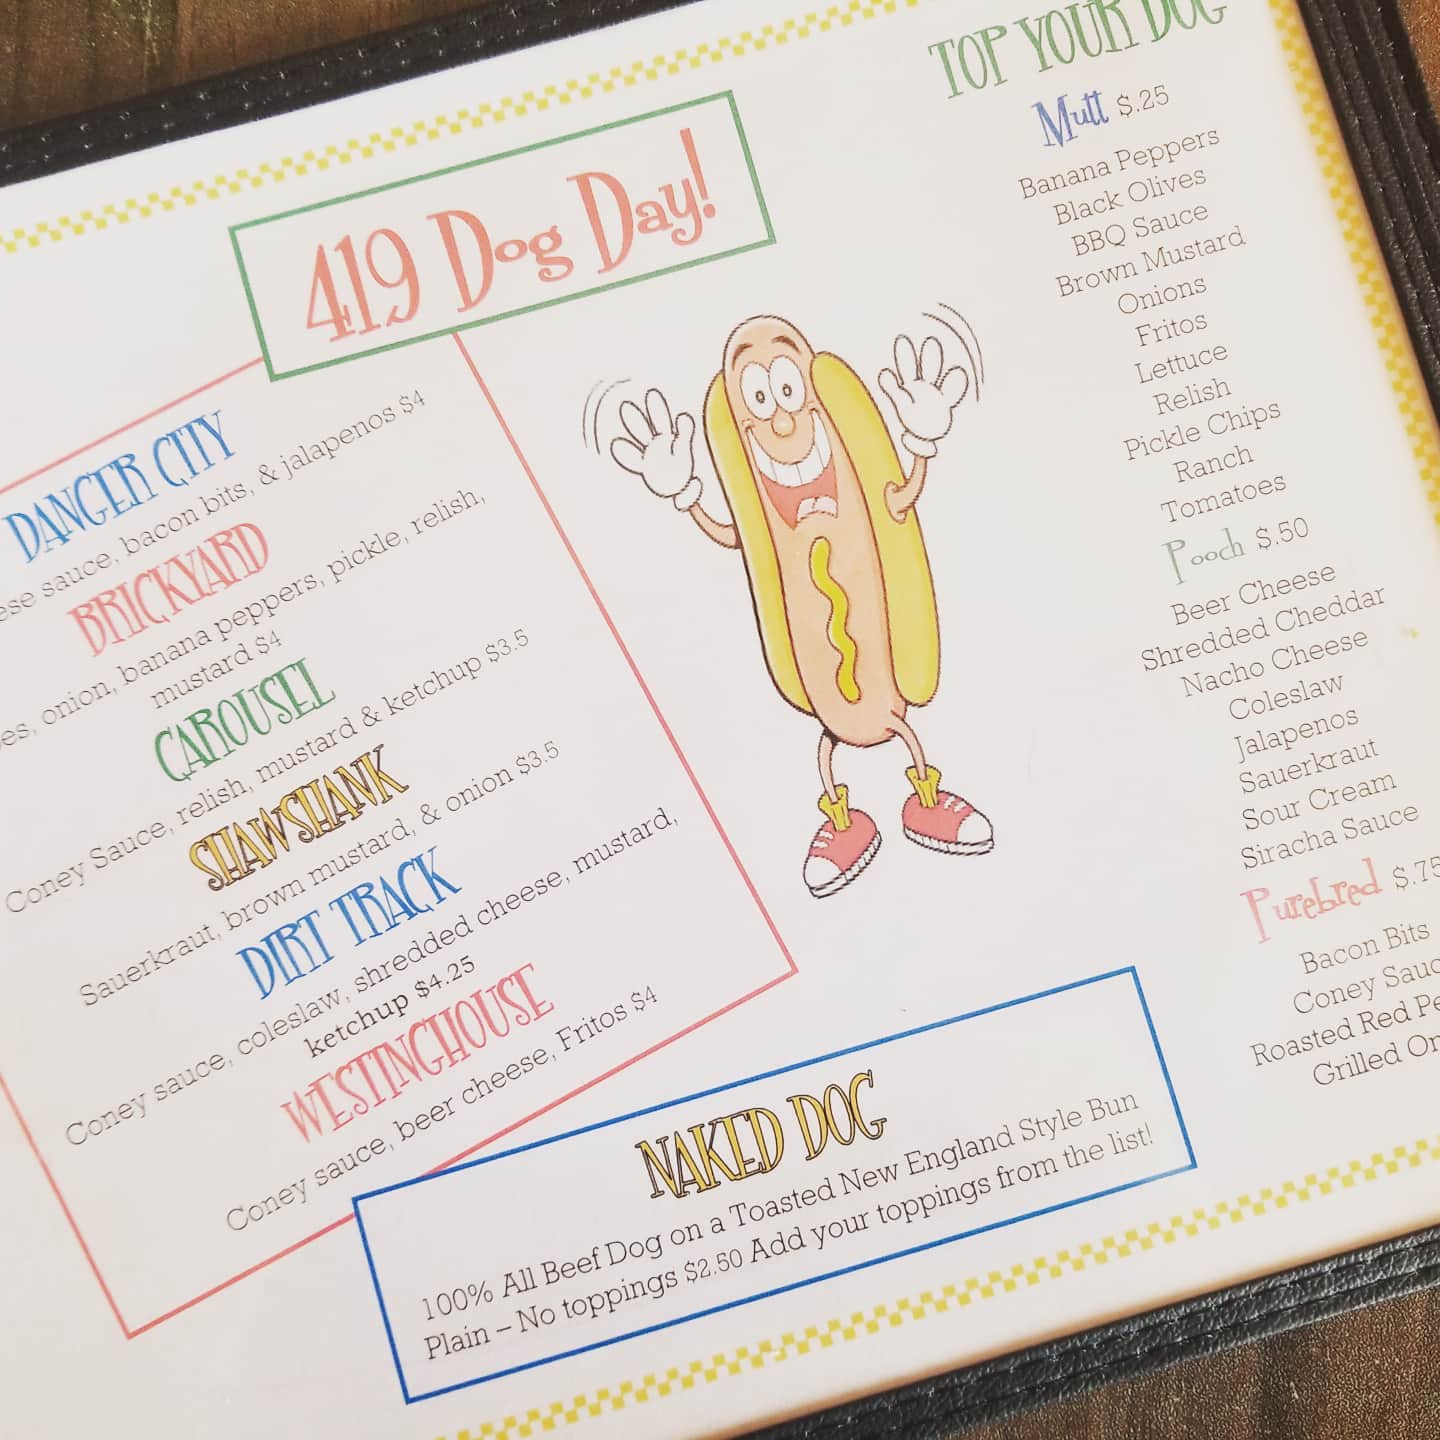 419 Dog Day!
DANGER CITY
sauce, bacon bits, & jalapenos $4
BRICKYARD
onion, banana peppers, pickle, relish,
mustard $4
CAROUSEL
Coney Sauce, relish, mustard & ketchup $3.5
SHAWSHANK
Sauerkraut, brown mustard, & onion $3.5
DIRT TRACK
Coney sauce, coleslaw, shredded cheese, mustard,
ketchup $4.25
WESTINGHOUSE
Coney sauce, beer cheese, Fritos $4
NAKED DOG
100% All Beef Dog on a Toasted New England Style Bun
Plain – No toppings $2.50 Add your toppings from the list!
TOP YOUR DOG
Mutt $.25
Banana Peppers
Black Olives
BBQ Sauce
Brown Mustard
Onions
Fritos
Lettuce
Relish
Pickle Chips
Ranch
Tomatoes
Pooch $.50
Beer Cheese
Shredded Cheddar
Nacho Cheese
Coleslaw
Jalapenos
Sauerkraut
Sour Cream
Siracha Sauce
Purebred $.75
Bacon Bits
Coney
Roasted Red
Grilled